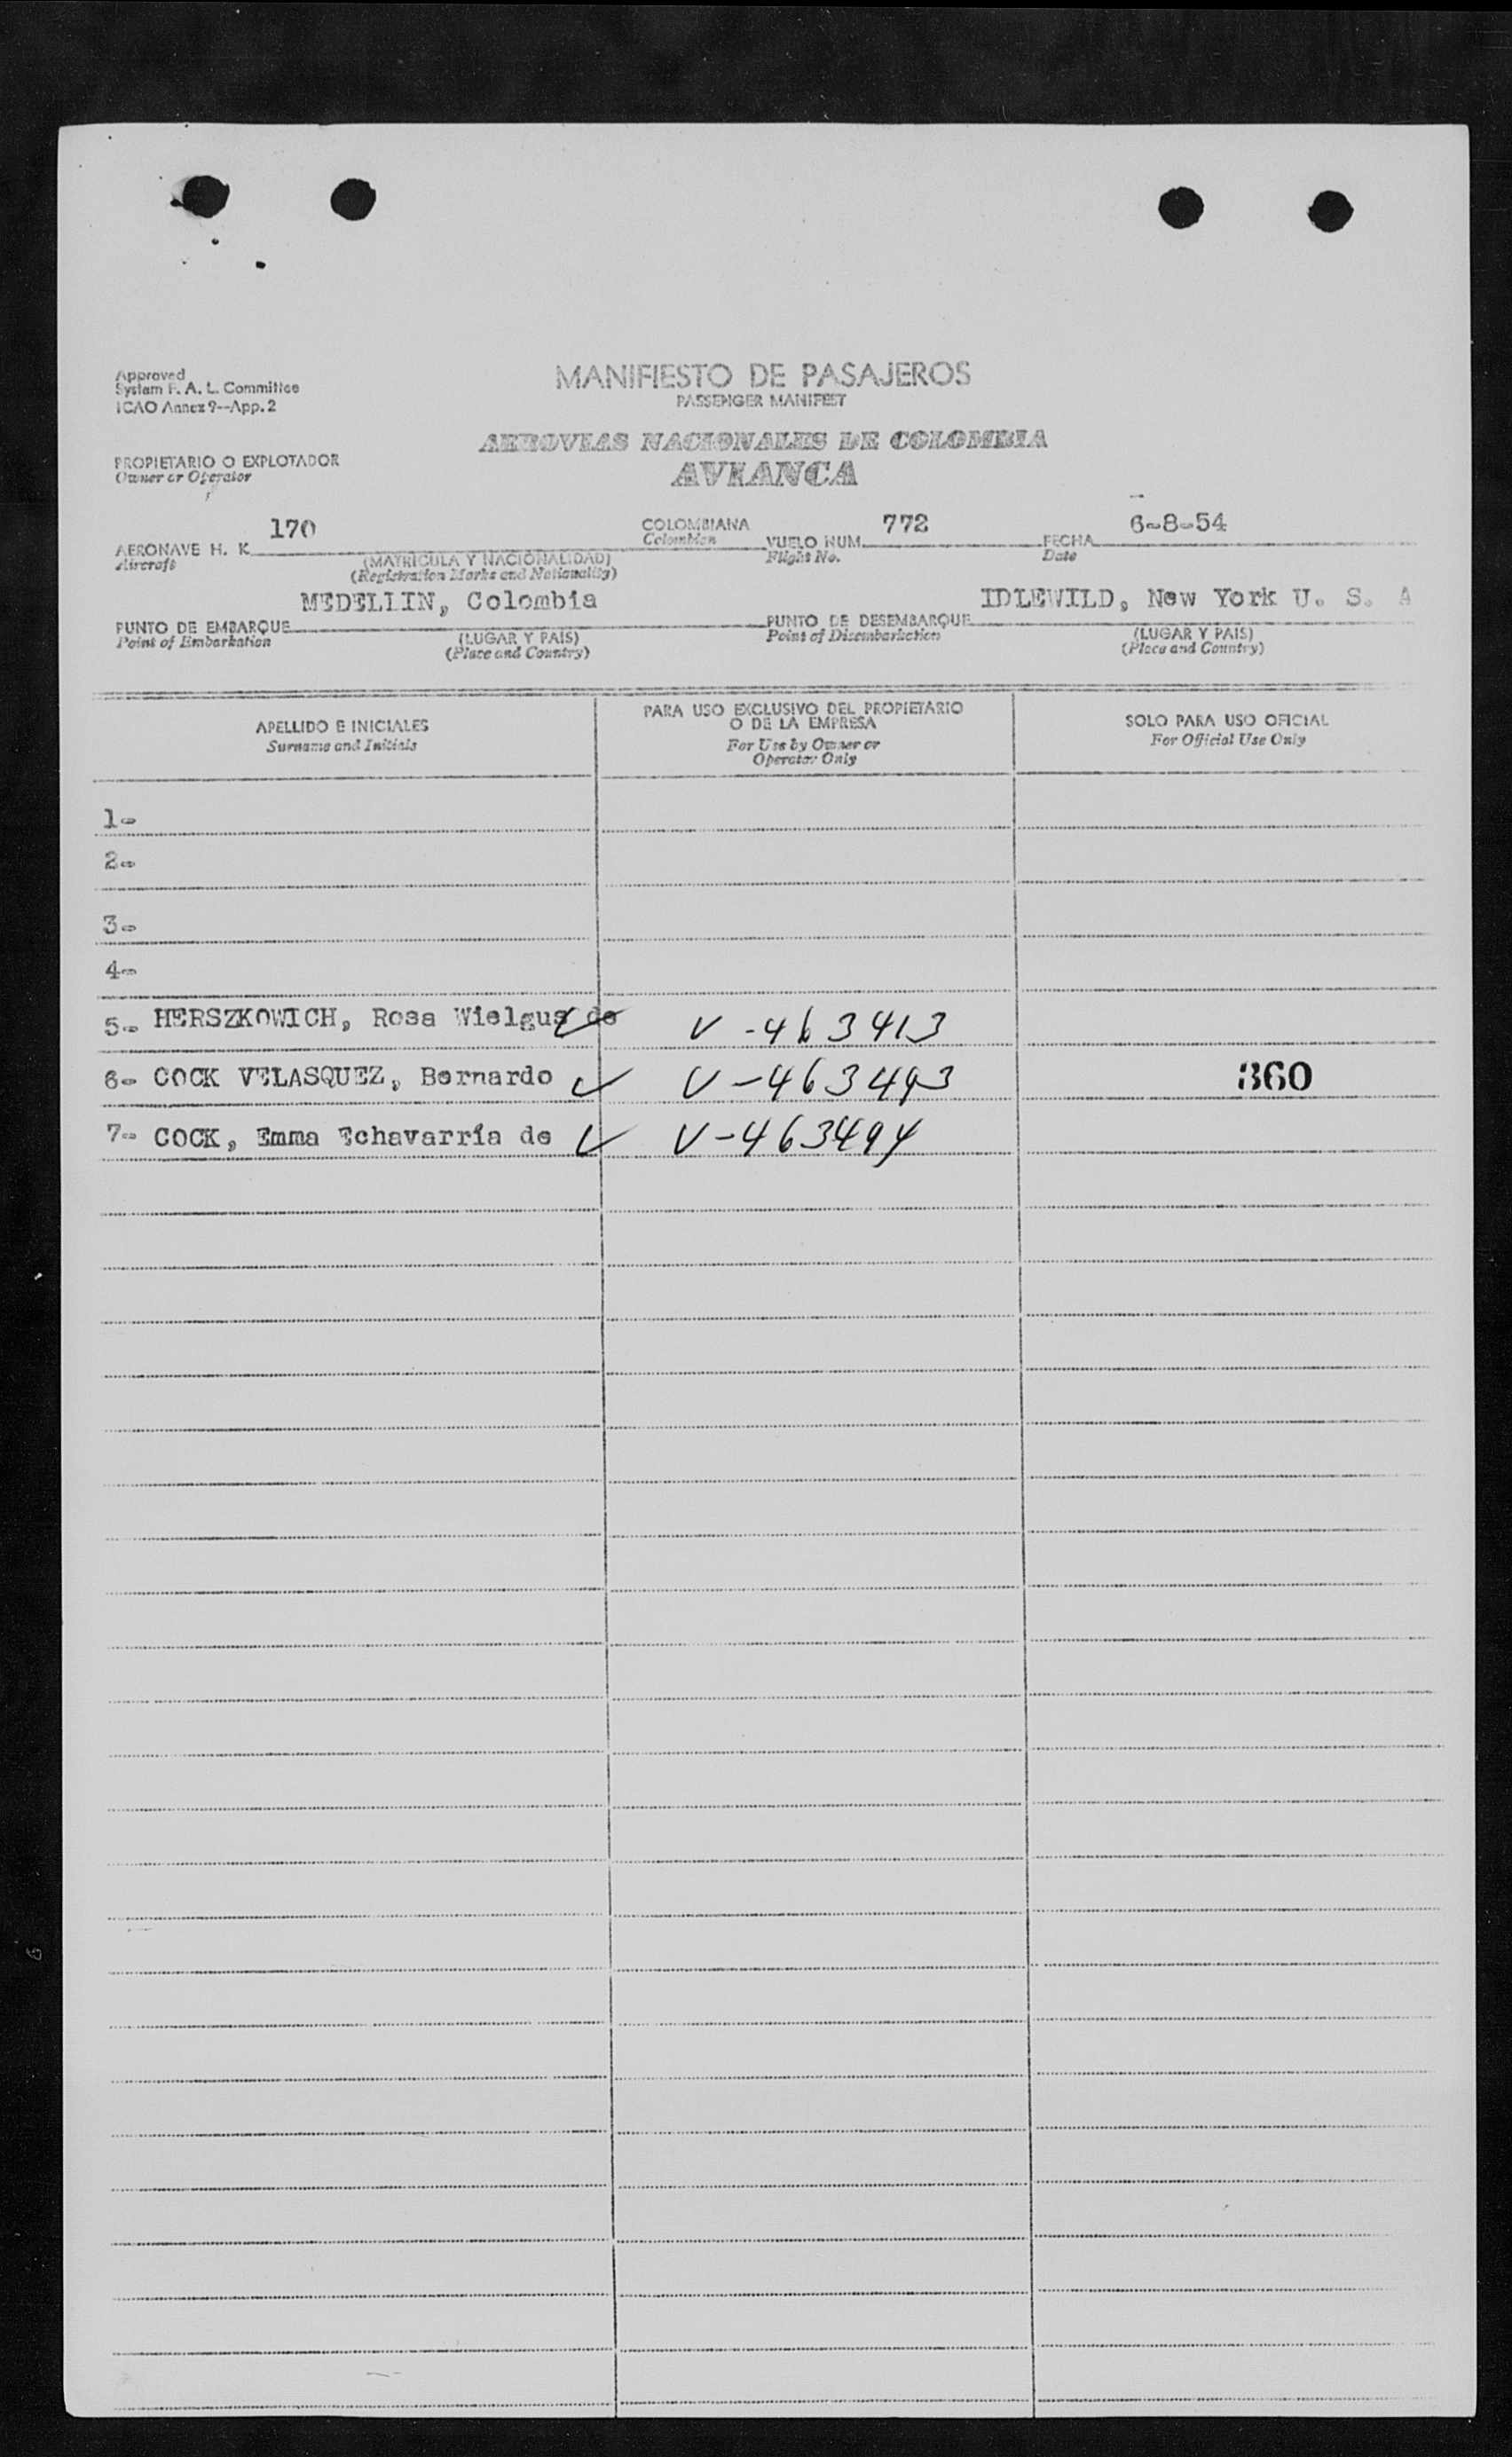 Approved
System F. A. L. Committee
ICAO Annex 9--App. 2
MANIFIESTO DE PASAJEROS
PASSENGER MANIFEST
AEROVIAS NACIONALES DE COLOMBIA
AVIANCA
PROPIETARIO O EXPLOTADOR
Owner or Operator
AERONAVE H. K. 170 COLOMBIANA VUELO NUM. 772 FECHA 6-8-54
Aircraft Colombian Flight No. Date
(MATRICULA Y NACIONALIDAD)
(Registration Marks and Nationality)
PUNTO DE EMBARQUE MEDELLIN, Colombia PUNTO DE DESEMBARQUE IDLEWILD, New York U. S. A
Point of Embarkation Point of Disembarkation
(LUGAR Y PAIS) (LUGAR Y PAIS)
(Place and Country) (Place and Country)
APELLIDO E INICIALES
Surname and Initials
PARA USO EXCLUSIVO DEL PROPIETARIO
O DE LA EMPRESA
For Use by Owner or
Operator Only
SOLO PARA USO OFICIAL
For Official Use Only
1-
2-
3-
4-
5- HERSZKOWICH, Rosa Wielgus de V-463413
6- COCK VELASQUEZ, Bernardo V-463493 360
7- COCK, Emma Echavarría de V-463494